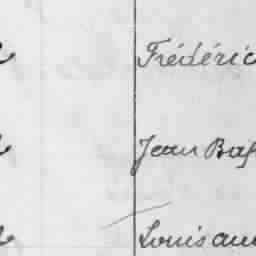 Frédéric
Jean Bap
Louis au